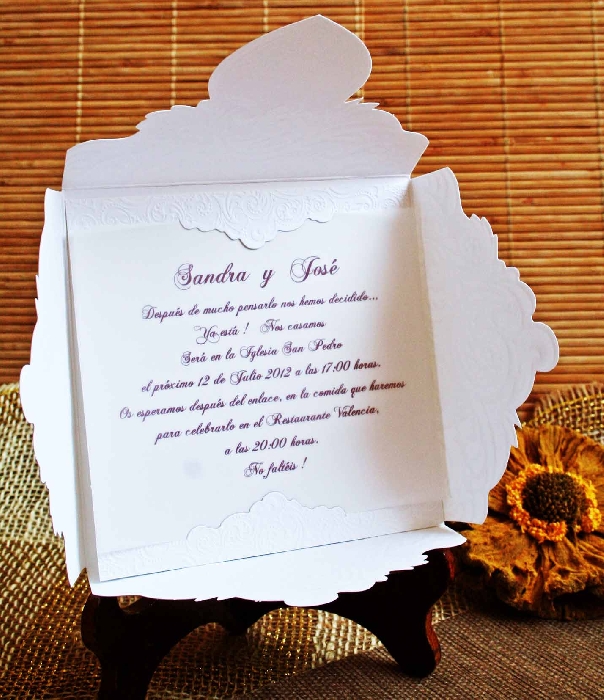 Sandra y José
Después de mucho pensarlo nos hemos decidido...
Ya está ! Nos casamos
Será en la Iglesia San Pedro
el próximo 12 de Julio 2012 a las 17:00 horas.
Os esperamos después del enlace, en la comida que haremos
para celebrarlo en el Restaurante Valencia,
a las 20:00 horas.
No faltéis !